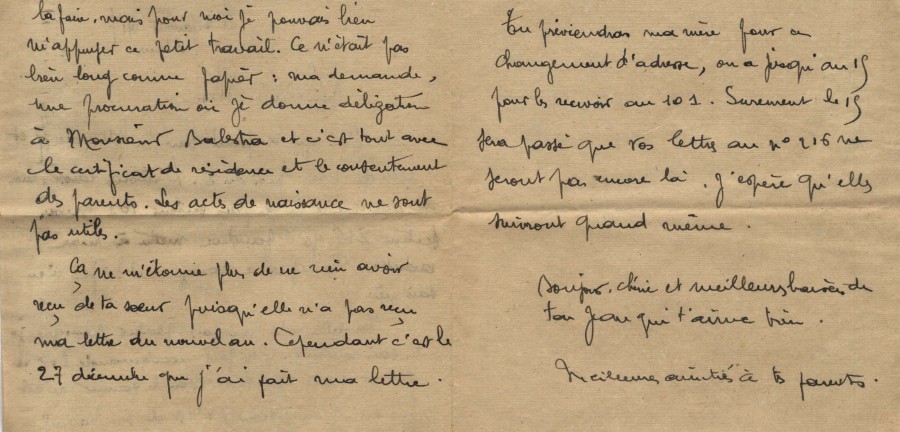 la faire, mais pour moi je pouvais bien
m'appuyer ce petit travail. Ce n'était pas
bien long comme papier : ma demande,
une procuration où je donne délégation
à Monsieur Balestra et c'est tout avec
le certificat de résidence et le consentement
des parents. Les actes de naissance ne sont
pas utiles.
Ça ne m'étonne plus de ne rien avoir
reçu de ta sœur puisqu'elle n'a pas reçu
ma lettre du nouvel an. Cependant c'est le
27 décembre que j'ai fait ma lettre.
Tu préviendras ma mère pour ce
changement d'adresse, on a jusqu'au 15
pour les recevoir au 101. Surement le 15
sera passé que vos lettres au n° 216 ne
seront pas encore là. J'espère qu'elles
suivront quand même.
Bonjour, chérie et meilleurs baisers de
ton Jean qui t'aime bien.
Meilleures amitiés à tes parents.